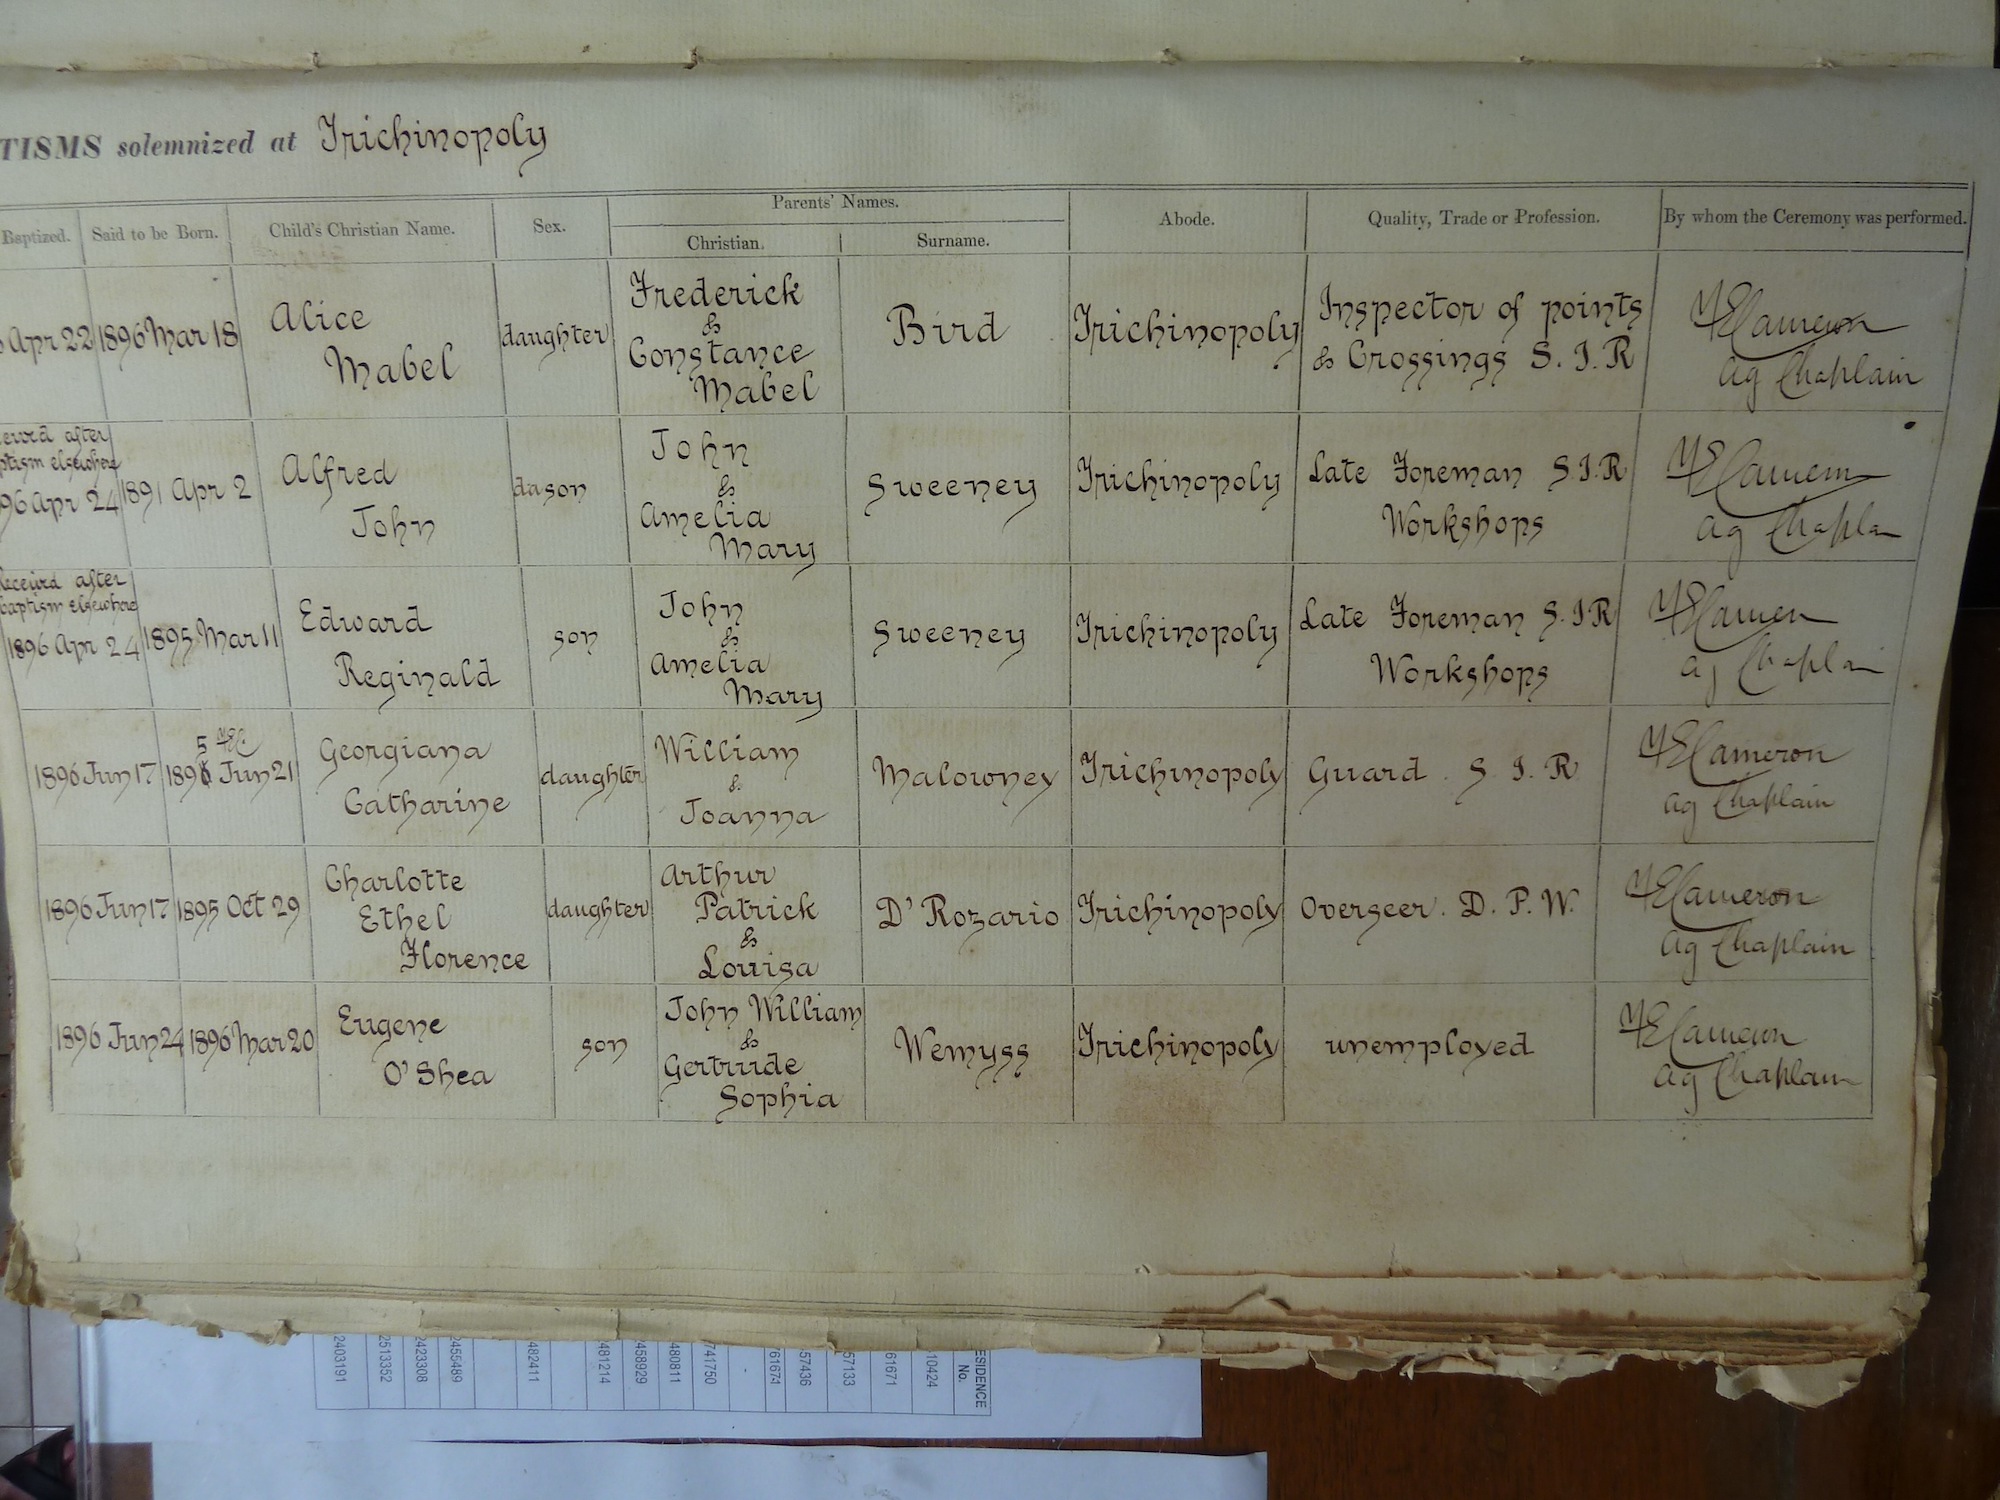 TISMS solemnized at Trichinopoly
Parents' Names.
Baptized. Said to be Born. Child's Christian Name. Sex. Christian. Surname. Abode. Quality, Trade or Profession. By whom the Ceremony was performed.
Apr 22 1896 Mar 18 Alice Mabel daughter Frederick & Constance Mabel Bird Trichinopoly Inspector of points & Crossings S. I. R Cameron Ag Chaplain
after
elsewhere
96 Apr 24 1891 Apr 2 Alfred John da son John & Amelia Mary Sweeney Trichinopoly Late Foreman S. I. R Workshops Cameron Ag Chaplain
Received after
baptism elsewhere
1896 Apr 24 1895 Mar 11 Edward Reginald son John & Amelia Mary Sweeney Trichinopoly Late Foreman S. I R Workshops Cameron Ag Chaplain
5
1896 Jun 17 1896 Jun 21 Georgiana Catharine daughter William & Joanna Malowney Trichinopoly Guard. S. I. R Cameron Ag Chaplain
1896 Jun 17 1895 Oct 29 Charlotte Ethel Florence daughter Arthur Patrick & Louisa D' Rozario Trichinopoly Overseer. D. P. W. Cameron Ag Chaplain
1896 Jun 24 1896 Mar 20 Eugene O'Shea son John William & Gertrude Sophia Wemyss Trichinopoly unemployed Cameron Ag Chaplain
ESIDENCE
No.
10424
61671
57133
57436
61671
741750
480811
458929
481214
482411
2455489
2423308
2513352
2403191